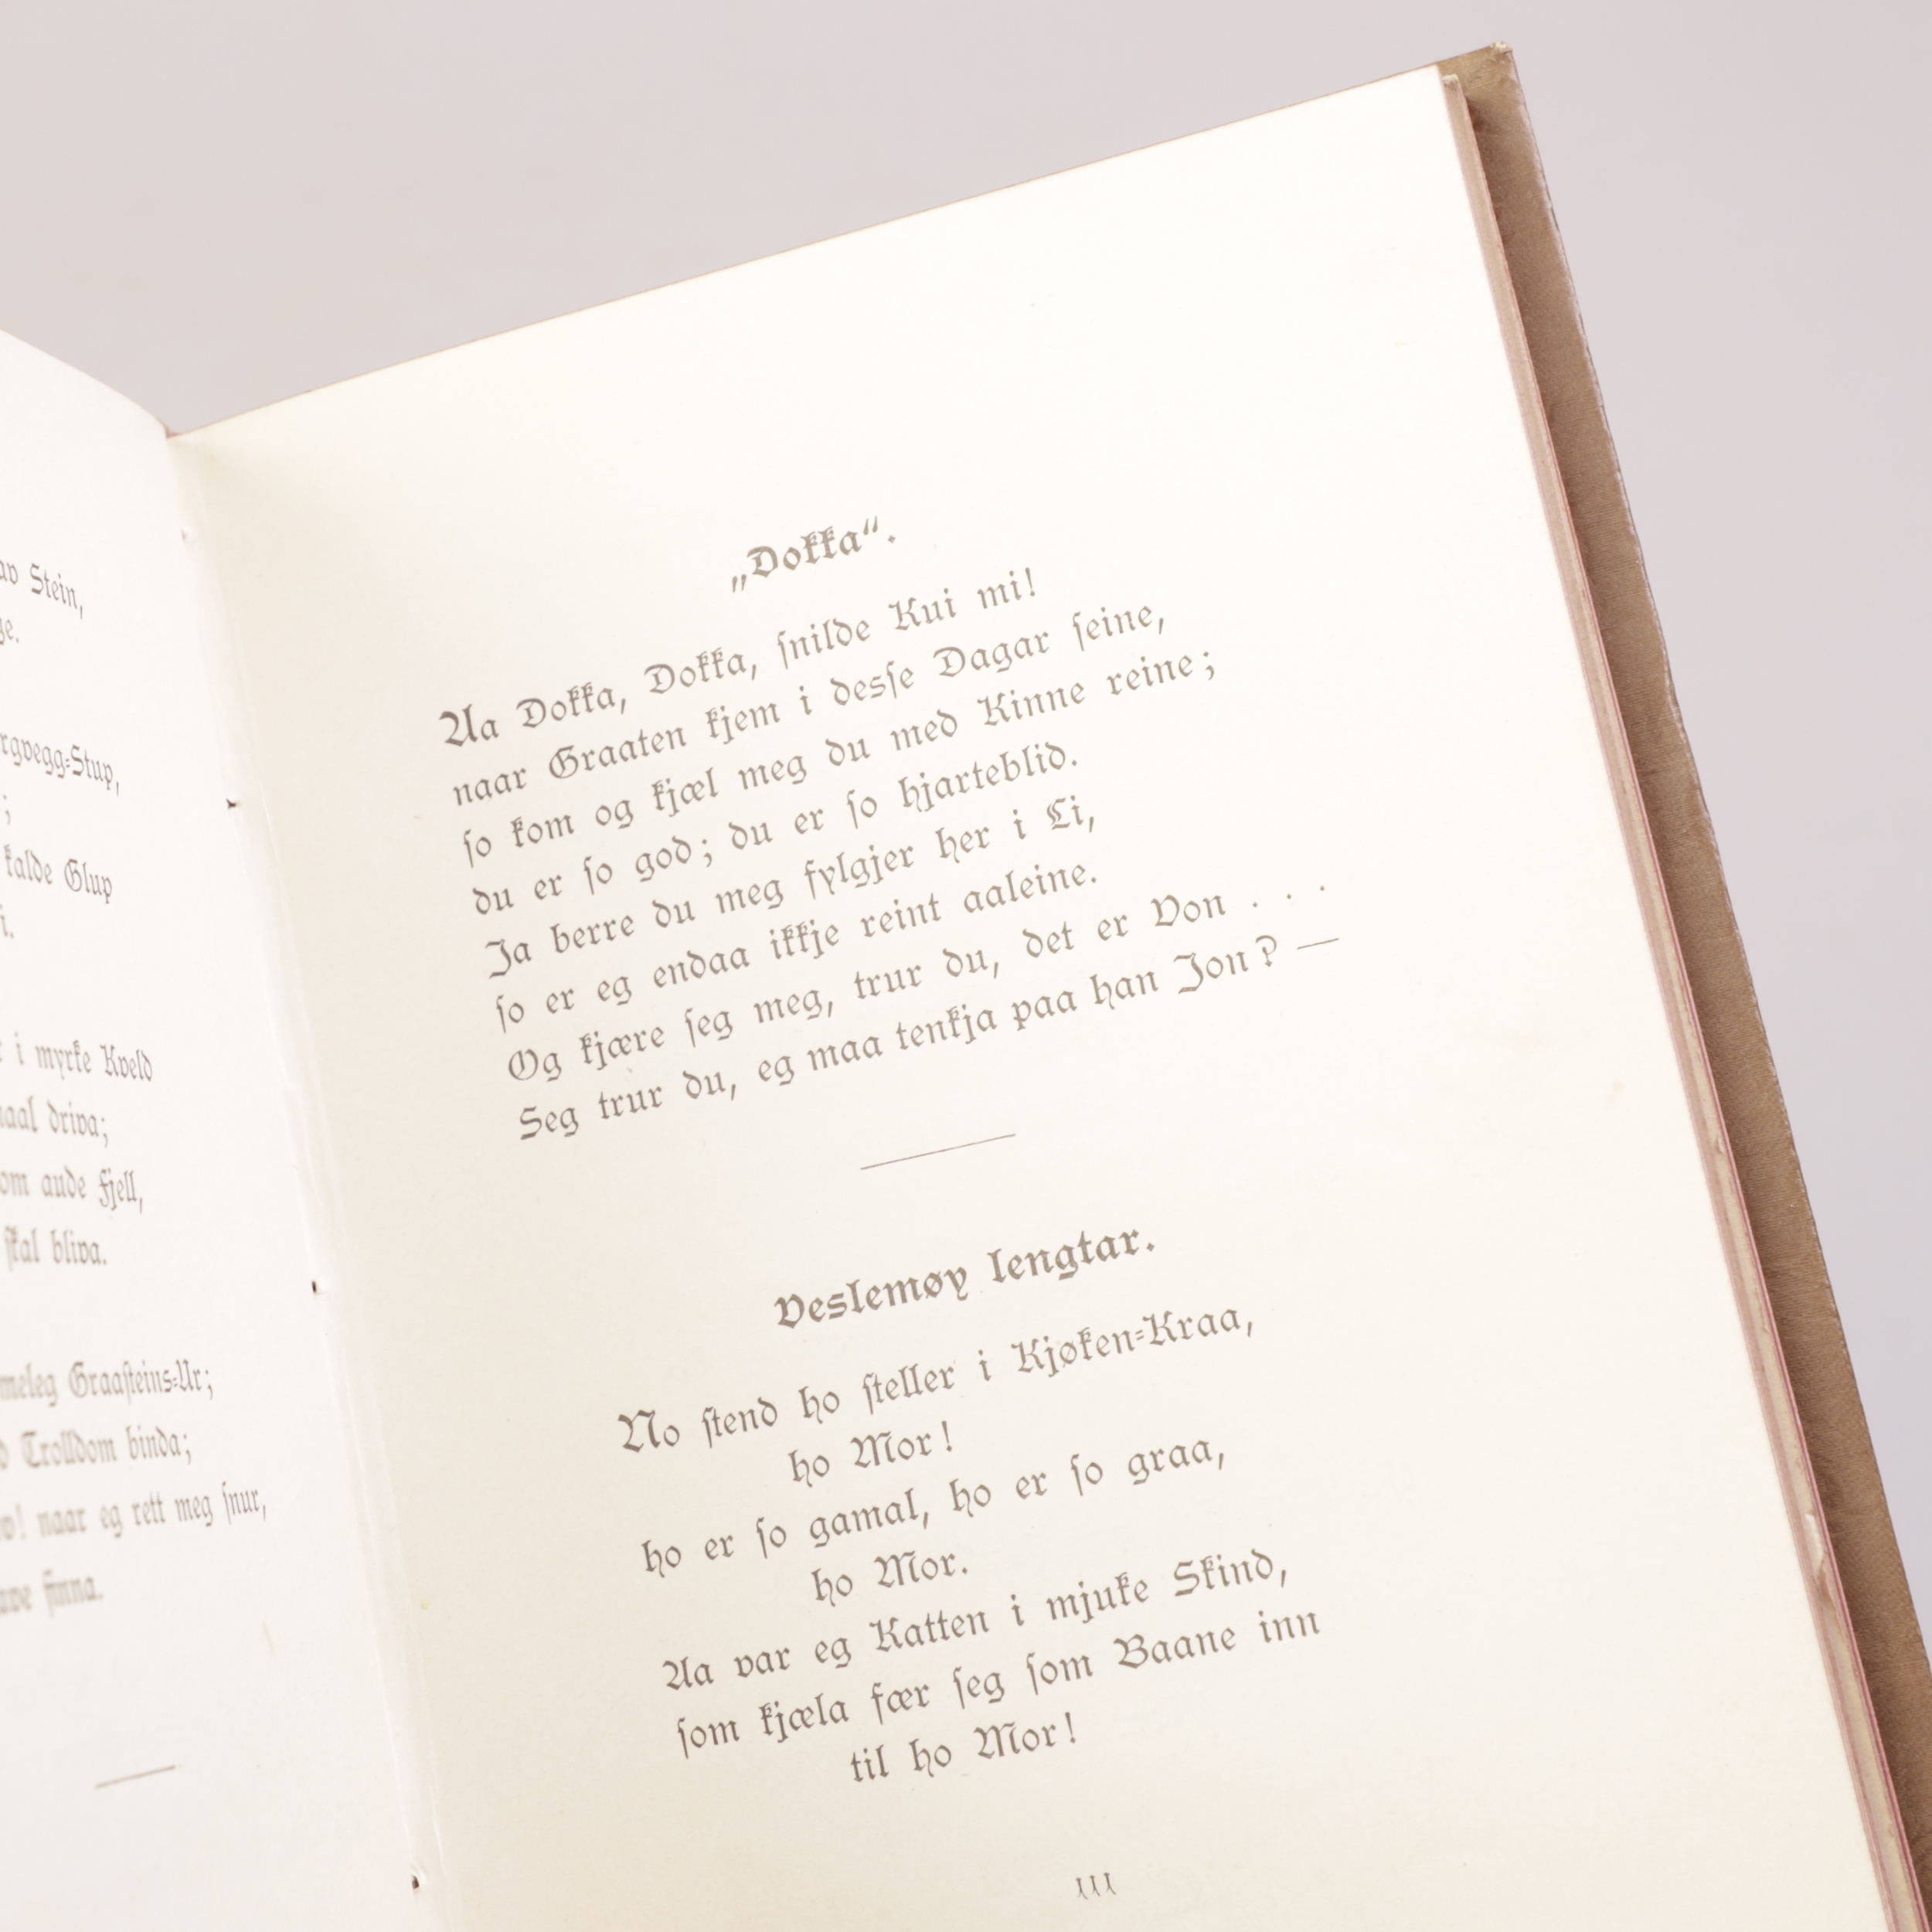 av Stein,
rgvegg-Stup,
;
kalde Glup
i.
i myrke Kveld
driva;
aude Fjell,
skal bliva.
Graasteins-Ur;
Trolldom binda;
naar eg rett meg snur,
finna.
„Dokka“.
Aa Dokka, Dokka, snilde Kui mi!
naar Graaten kjem i desse Dagar seine,
so kom og kjæl meg du med Kinne reine;
du er so god; du er so hjarteblid.
Ja berre du meg fylgjer her i Li,
so er eg endaa ikkje reint aaleine.
Og kjære seg meg, trur du, det er Von . . .
Seg trur du, eg maa tenkja paa han Jon? —
Veslemøy lengtar.
No stend ho steller i Kjøken-Kraa,
ho Mor!
ho er so gamal, ho er so graa,
ho Mor.
Aa var eg Katten i mjuke Skind,
som kjæla fær seg som Baane inn
til ho Mor!
111